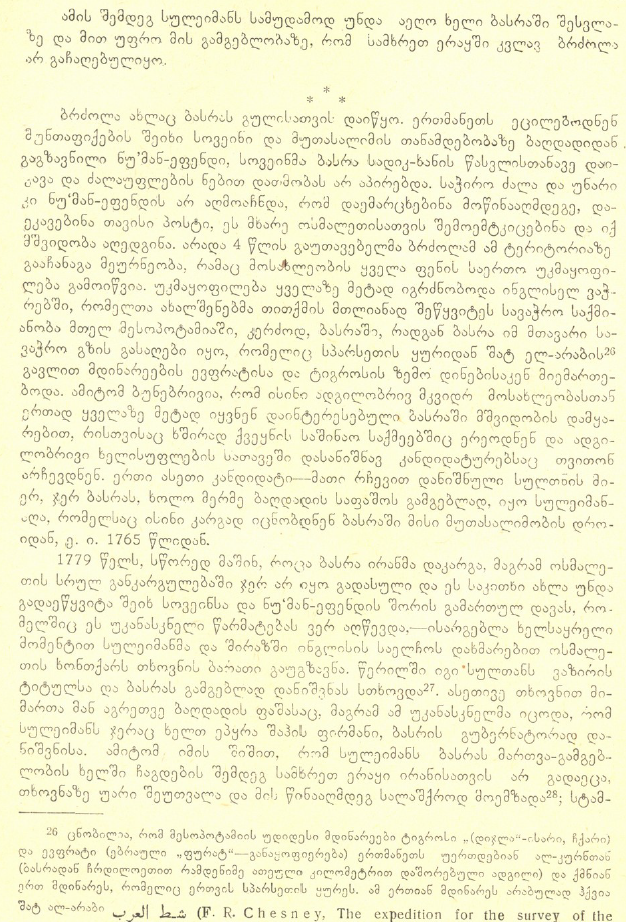 ამის შემდეგ სულეიმანს სამუდამოდ უნდა აეღო ხელი ბასრაში შესვლა-
ზე და მით უფრო მის გამგებლობაზე, რომ სამხრეთ ერაყში კვლავ ბრძოლა
არ გაჩაღებულიყო.
*
* *
ბრძოლა ახლაც ბასრას გულისათვის დაიწყო. ერთმანეთს ეცილებოდნენ
მუნთაფიქების შეიხი სოვეინი და მუთასალიმის თანამდებობაზე ბაღდადიდან
გაგზავნილი ნუ'მან-ეფენდი, სოვეინმა ბასრა სადიკ-ხანის წასვლისთანავე დაი-
კავა და ძალაუფლების ნებით დათმობას არ აპირებდა. საჭირო ძალა და უნარი
კი ნუ'მან-ეფენდის არ აღმოაჩნდა, რომ დაემარცხებინა მოწინააღმდეგე, და-
ეკავებინა თავისი პოსტი, ეს მხარე ოსმალეთისათვის შემოემტკიცებინა და იქ
მშვიდობა აღედგინა. არადა 4 წლის გაუთავებელმა ბრძოლამ ამ ტერიტორიაზე
გააჩანაგა მეურნეობა, რამაც მოსახლეობის ყველა ფენის საერთო უკმაყოფი-
ლება გამოიწვია. უკმაყოფილება ყველაზე მეტად იგრძნობოდა ინგლისელ ვაჭ-
რებში, რომელთა ახალშენებმა თითქმის მთლიანად შეწყვიტეს სავაჭრო საქმი-
ანობა მთელ მესოპოტამიაში, კერძოდ, ბასრაში, რადგან ბასრა იმ მთავარი სა-
ვაჭრო გზის გასაღები იყო, რომელიც სპარსეთის ყურიდან შატ ელ-არაბის26
გავლით მდინარეების ევფრატისა და ტიგროსის ზემო დინებისაკენ მიემართე-
ბოდა. ამიტომ ბუნებრივია, რომ ისინი ადგილობრივ მკვიდრ მოსახლეობასთან
ერთად ყველაზე მეტად იყვნენ დაინტერესებული ბასრაში მშვიდობის დამყა-
რებით, რისთვისაც ხშირად ქვეყნის საშინაო საქმეებშიც ერეოდნენ და ადგი-
ლობრივი ხელისუფლების სათავეში დასანიშნავ კანდიდატურებსაც თვითონ
არჩევდნენ. ერთი ასეთი კანდიდატი—მათი რჩევით დანიშნული სულთნის მი-
ერ, ჯერ ბასრას, ხოლო მერმე ბაღდადის საფაშოს გამგებლად, იყო სულეიმან-
აღა, რომელსაც ისინი კარგად იცნობდნენ ბასრაში მისი მუთასალიმობის დრო-
იდან, ე. ი. 1765 წლიდან.
1779 წელს, სწორედ მაშინ, როცა ბასრა ირანმა დაკარგა, მაგრამ ოსმალე-
თის სრულ განკარგულებაში ჯერ არ იყო გადასული და ეს საკითხი ახლა უნდა
გადაეწყვიტა შეიხ სოვეინსა და ნუ'მან-ეფენდის შორის გამართულ დავას, რო-
მელშიც ეს უკანასკნელი წარმატებას ვერ აღწევდა,—ისარგებლა ხელსაყრელი
მომენტით სულეიმანმა და შირაზში ინგლისის საელჩოს დახმარებით ოსმალე-
თის ხონთქარს თხოვნის ბარათი გაუგზავნა. წერილში იგი სულთანს ვაზირის
ტიტულსა და ბასრას გამგებლად დანიშვნას სთხოვდა27. ასეთივე თხოვნით მი-
მართა მან აგრეთვე ბაღდადის ფაშასაც, მაგრამ ამ უკანასკნელმა იცოდა, რომ
სულეიმანს ჯერაც ხელთ ეპყრა შაჰის ფირმანი, ბასრის გუბერნატორად და-
ნიშვნისა. ამიტომ იმის შიშით, რომ სულეიმანს ბასრას მართვა-გამგებ-
ლობის ხელში ჩაგდების შემდეგ სამხრეთ ერაყი ირანისათვის არ გადაეცა,
თხოვნაზე უარი შეუთვალა და მის წინააღმდეგ სალაშქროდ მოემზადა28; სტამ-
26 ცნობილია, რომ მესოპოტამიის უდიდესი მდინარეები ტიგროსი „(დიჯლა“-ისარი, ჩქარი)
და ევფრატი (ებრაული „ფურატ“—განაყოფიერება) ერთმანეთს უერთდებიან ალ-კურნთან
(ბასრადან ჩრდილოეთით რამდენიმე ათეული კილომეტრით დაშორებული ადგილი) და ქმნიან
ერთ მდინარეს, რომელიც ერთვის სპარსეთის ყურეს. ამ ერთიან მდინარეს არაბულად ჰქვია
შატ ალ-არაბი شط العرب (F. R. Chesney, The expedition for the survey of the